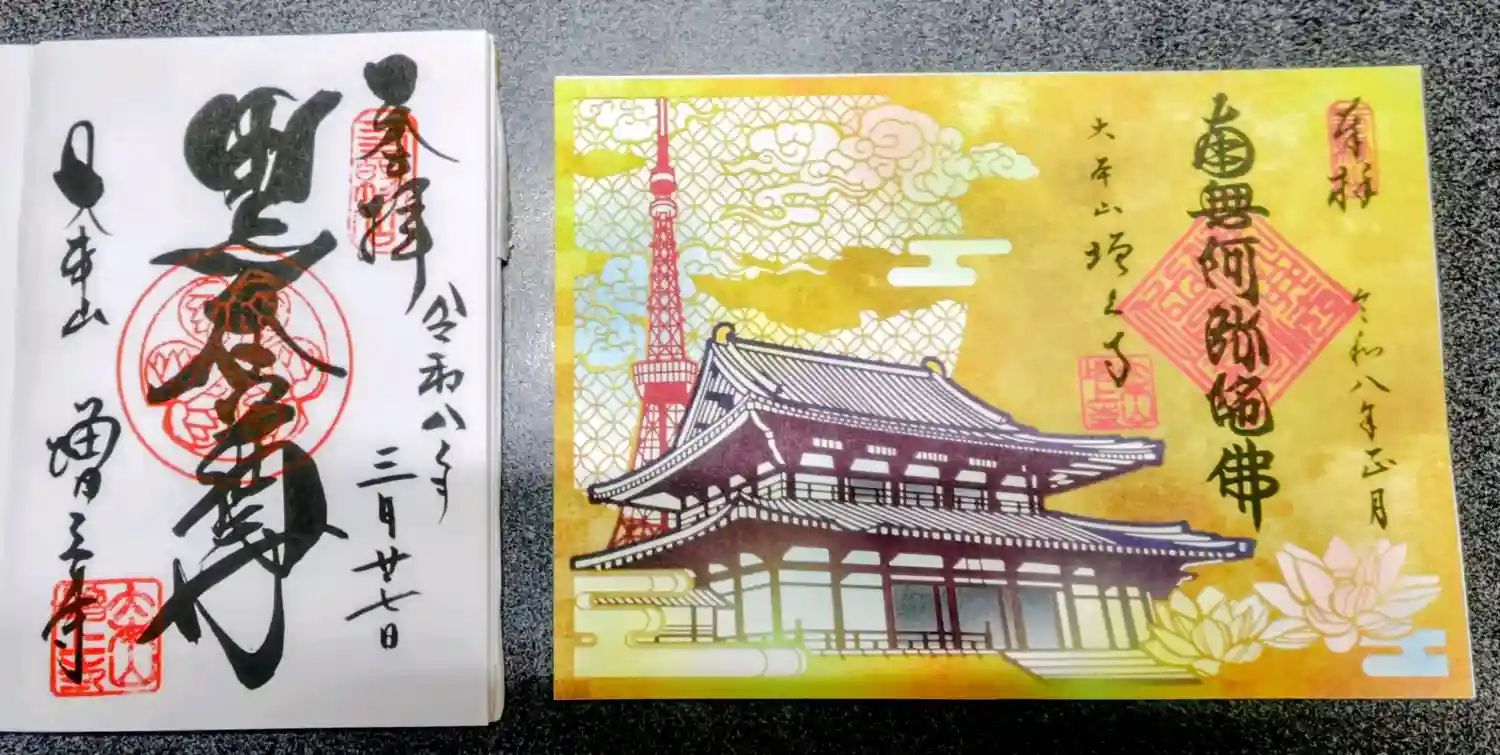 奉拝
令和八年
三月廿七日
黒本尊
大本山 増上寺
奉拝
令和八年正月
南無阿弥陀佛
大本山増上寺